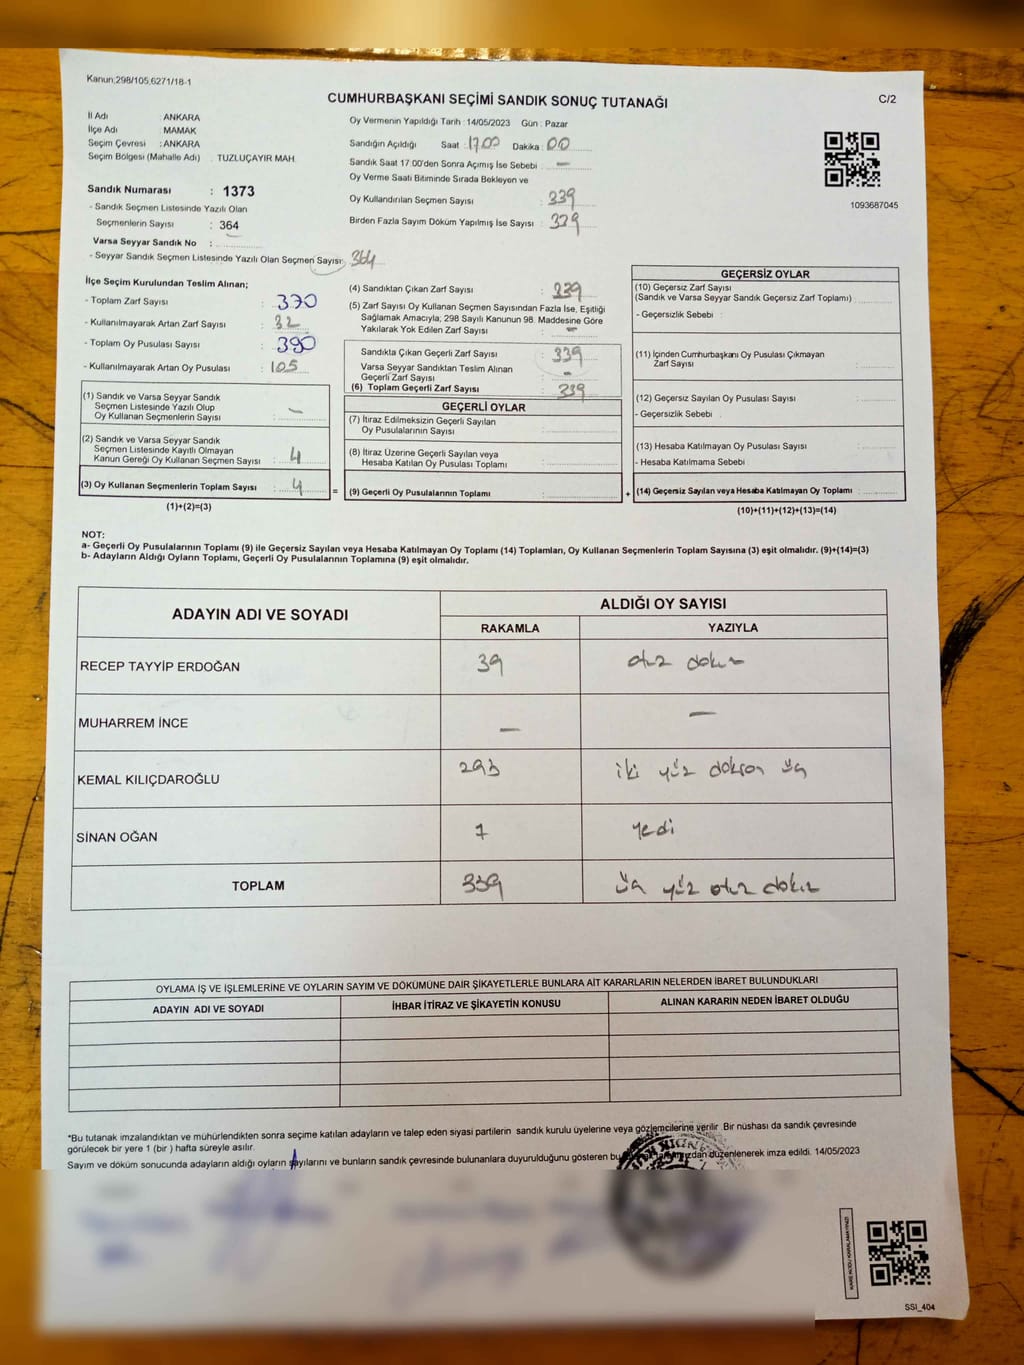 Kanun;298/105,6271/18-1
CUMHURBAŞKANI SEÇİMİ SANDIK SONUÇ TUTANAĞI
C/2
İl Adı : ANKARA
İlçe Adı : MAMAK
Seçim Çevresi : ANKARA
Seçim Bölgesi (Mahalle Adı) : TUZLUÇAYIR MAH.
Sandık Numarası : 1373
- Sandık Seçmen Listesinde Yazılı Olan
Seçmenlerin Sayısı : 364
Varsa Seyyar Sandık No :
- Seyyar Sandık Seçmen Listesinde Yazılı Olan Seçmen Sayısı: 364
Oy Vermenin Yapıldığı Tarih : 14/05/2023 Gün : Pazar
Sandığın Açıldığı Saat : 17.00 Dakika : 00
Sandık Saat 17.00'den Sonra Açımış İse Sebebi : —
Oy Verme Saati Bitiminde Sırada Bekleyen ve
Oy Kullandırılan Seçmen Sayısı : 339
Birden Fazla Sayım Döküm Yapılmış İse Sayısı : 339
1093687045
İlçe Seçim Kurulundan Teslim Alınan;
- Toplam Zarf Sayısı : 370
- Kullanılmayarak Artan Zarf Sayısı : 32
- Toplam Oy Pusulası Sayısı : 390
- Kullanılmayarak Artan Oy Pusulası : 105
(1) Sandık ve Varsa Seyyar Sandık
Seçmen Listesinde Yazılı Olup
Oy Kullanan Seçmenlerin Sayısı : —
(2) Sandık ve Varsa Seyyar Sandık
Seçmen Listesinde Kayıtlı Olmayan
Kanun Gereği Oy Kullanan Seçmen Sayısı : 4
(3) Oy Kullanan Seçmenlerin Toplam Sayısı : 4
(1)+(2)=(3)
(4) Sandıktan Çıkan Zarf Sayısı : 339
(5) Zarf Sayısı Oy Kullanan Seçmen Sayısından Fazla İse, Eşitliği
Sağlamak Amacıyla; 298 Sayılı Kanunun 98. Maddesine Göre
Yakılarak Yok Edilen Zarf Sayısı : —
Sandıkta Çıkan Geçerli Zarf Sayısı : 339
Varsa Seyyar Sandıktan Teslim Alınan
Geçerli Zarf Sayısı : —
(6) Toplam Geçerli Zarf Sayısı : 339
GEÇERLİ OYLAR
(7) İtiraz Edilmeksizin Geçerli Sayılan
Oy Pusulalarının Sayısı :
(8) İtiraz Üzerine Geçerli Sayılan veya
Hesaba Katılan Oy Pusulası Toplamı :
= (9) Geçerli Oy Pusulalarının Toplamı :
GEÇERSİZ OYLAR
(10) Geçersiz Zarf Sayısı
(Sandık ve Varsa Seyyar Sandık Geçersiz Zarf Toplamı) :
- Geçersizlik Sebebi :
(11) İçinden Cumhurbaşkanı Oy Pusulası Çıkmayan
Zarf Sayısı :
(12) Geçersiz Sayılan Oy Pusulası Sayısı :
- Geçersizlik Sebebi :
(13) Hesaba Katılmayan Oy Pusulası Sayısı :
- Hesaba Katılmama Sebebi :
+ (14) Geçersiz Sayılan veya Hesaba Katılmayan Oy Toplamı :
(10)+(11)+(12)+(13)=(14)
NOT:
a- Geçerli Oy Pusulalarının Toplamı (9) ile Geçersiz Sayılan veya Hesaba Katılmayan Oy Toplamı (14) Toplamları, Oy Kullanan Seçmenlerin Toplam Sayısına (3) eşit olmalıdır. (9)+(14)=(3)
b- Adayların Aldığı Oyların Toplamı, Geçerli Oy Pusulalarının Toplamına (9) eşit olmalıdır.
ADAYIN ADI VE SOYADI ALDIĞI OY SAYISI
RAKAMLA YAZIYLA
RECEP TAYYİP ERDOĞAN 39 otuz dokuz
MUHARREM İNCE — —
KEMAL KILIÇDAROĞLU 293 iki yüz doksan üç
SİNAN OĞAN 7 yedi
TOPLAM 339 üç yüz otuz dokuz
OYLAMA İŞ VE İŞLEMLERİNE VE OYLARIN SAYIM VE DÖKÜMÜNE DAİR ŞİKAYETLERLE BUNLARA AİT KARARLARIN NELERDEN İBARET BULUNDUKLARI
ADAYIN ADI VE SOYADI İHBAR İTİRAZ VE ŞİKAYETİN KONUSU ALINAN KARARIN NEDEN İBARET OLDUĞU
*Bu tutanak imzalandıktan ve mühürlendikten sonra seçime katılan adayların ve talep eden siyasi partilerin sandık kurulu üyelerine veya gözlemcilerine verilir. Bir nüshası da sandık çevresinde
görülecek bir yere 1 (bir ) hafta süreyle asılır.
Sayım ve döküm sonucunda adayların aldığı oyların sayılarını ve bunların sandık çevresinde bulunanlara duyurulduğunu gösteren bu düzenlenerek imza edildi. 14/05/2023
KARE KODU KARALAMAYINIZ!
SSI_404